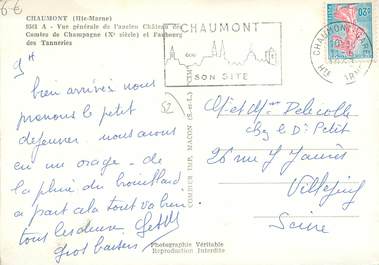 6€
CHAUMONT (Hte-Marne)
9561 A - Vue générale de l'ancien Château des
Comtes de Champagne (Xe siècle) et Faubourg
des Tanneries
9H
bien arrivés nous
prenons le petit
dejeuner. nous avons
eu un orage - de
la pluie du brouillard
a part cela tout va bien
tous les deux.
Gros baisers
52
COMBIER IMP. MACON (S.-et-L.)
Photographie Véritable
Reproduction Interdite
CHAUMONT
SON SITE
CHAUMONT GARE
Hte MARNE
0,20
Mr et Mme Delecolle
chez le Dr Petit
26 rue J Jaurès
Villejuif
Seine